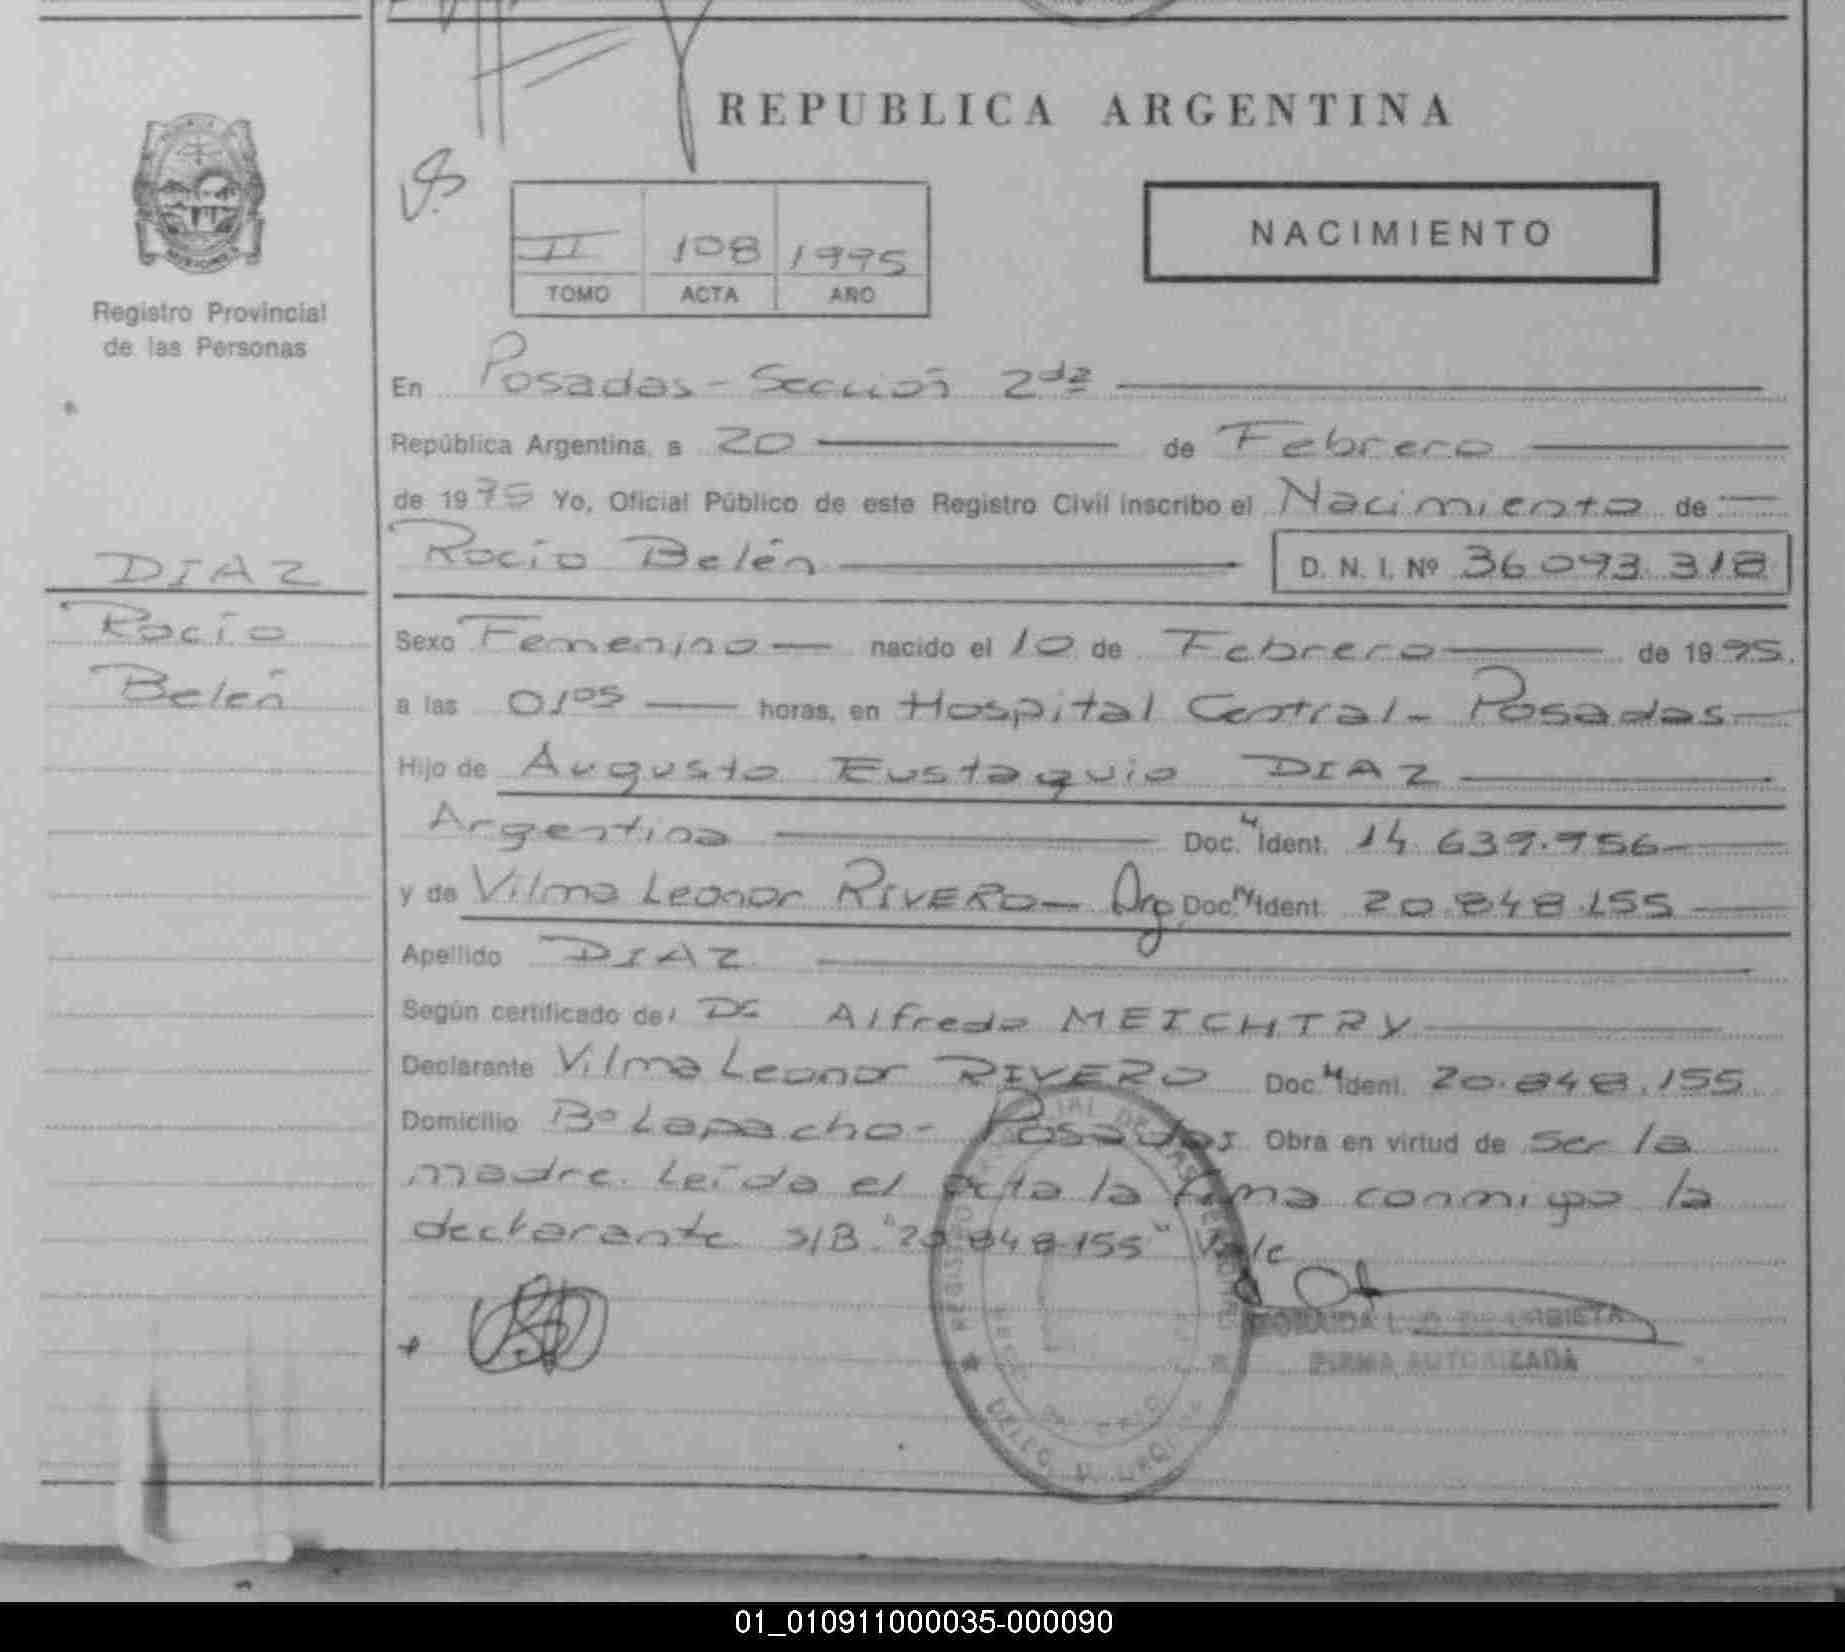 REPUBLICA ARGENTINA
NACIMIENTO
II 108 1995
TOMO ACTA AÑO
Registro Provincial
de las Personas
En Posadas - Sección 2da
República Argentina, a 20 de Febrero
de 1995 Yo, Oficial Público de este Registro Civil inscribo el Nacimiento de
Rocío Belén D. N. I. Nº 36093.318
DIAZ
Rocío
Belén
Sexo Femenino nacido el 10 de Febrero de 1995.
a las 01 05 horas, en Hospital Central - Posadas
Hijo de Augusto Eustaquio DIAZ
Argentina Doc. Ident. 14.639.956
y de Vilma Leonor RIVERO - Arg. Doc. Ident. 20.848.155
Apellido DIAZ
Según certificado del Dr Alfredo MEICHTRY
Declarante Vilma Leonor RIVERO Doc. Ident. 20.848.155
Domicilio Bº Lapacho - Posadas. Obra en virtud de ser la
madre. Leída el acta la firma conmigo la
declarante S/B. "20.848.155" Vale
FIRMA AUTORIZADA
01_010911000035-000090